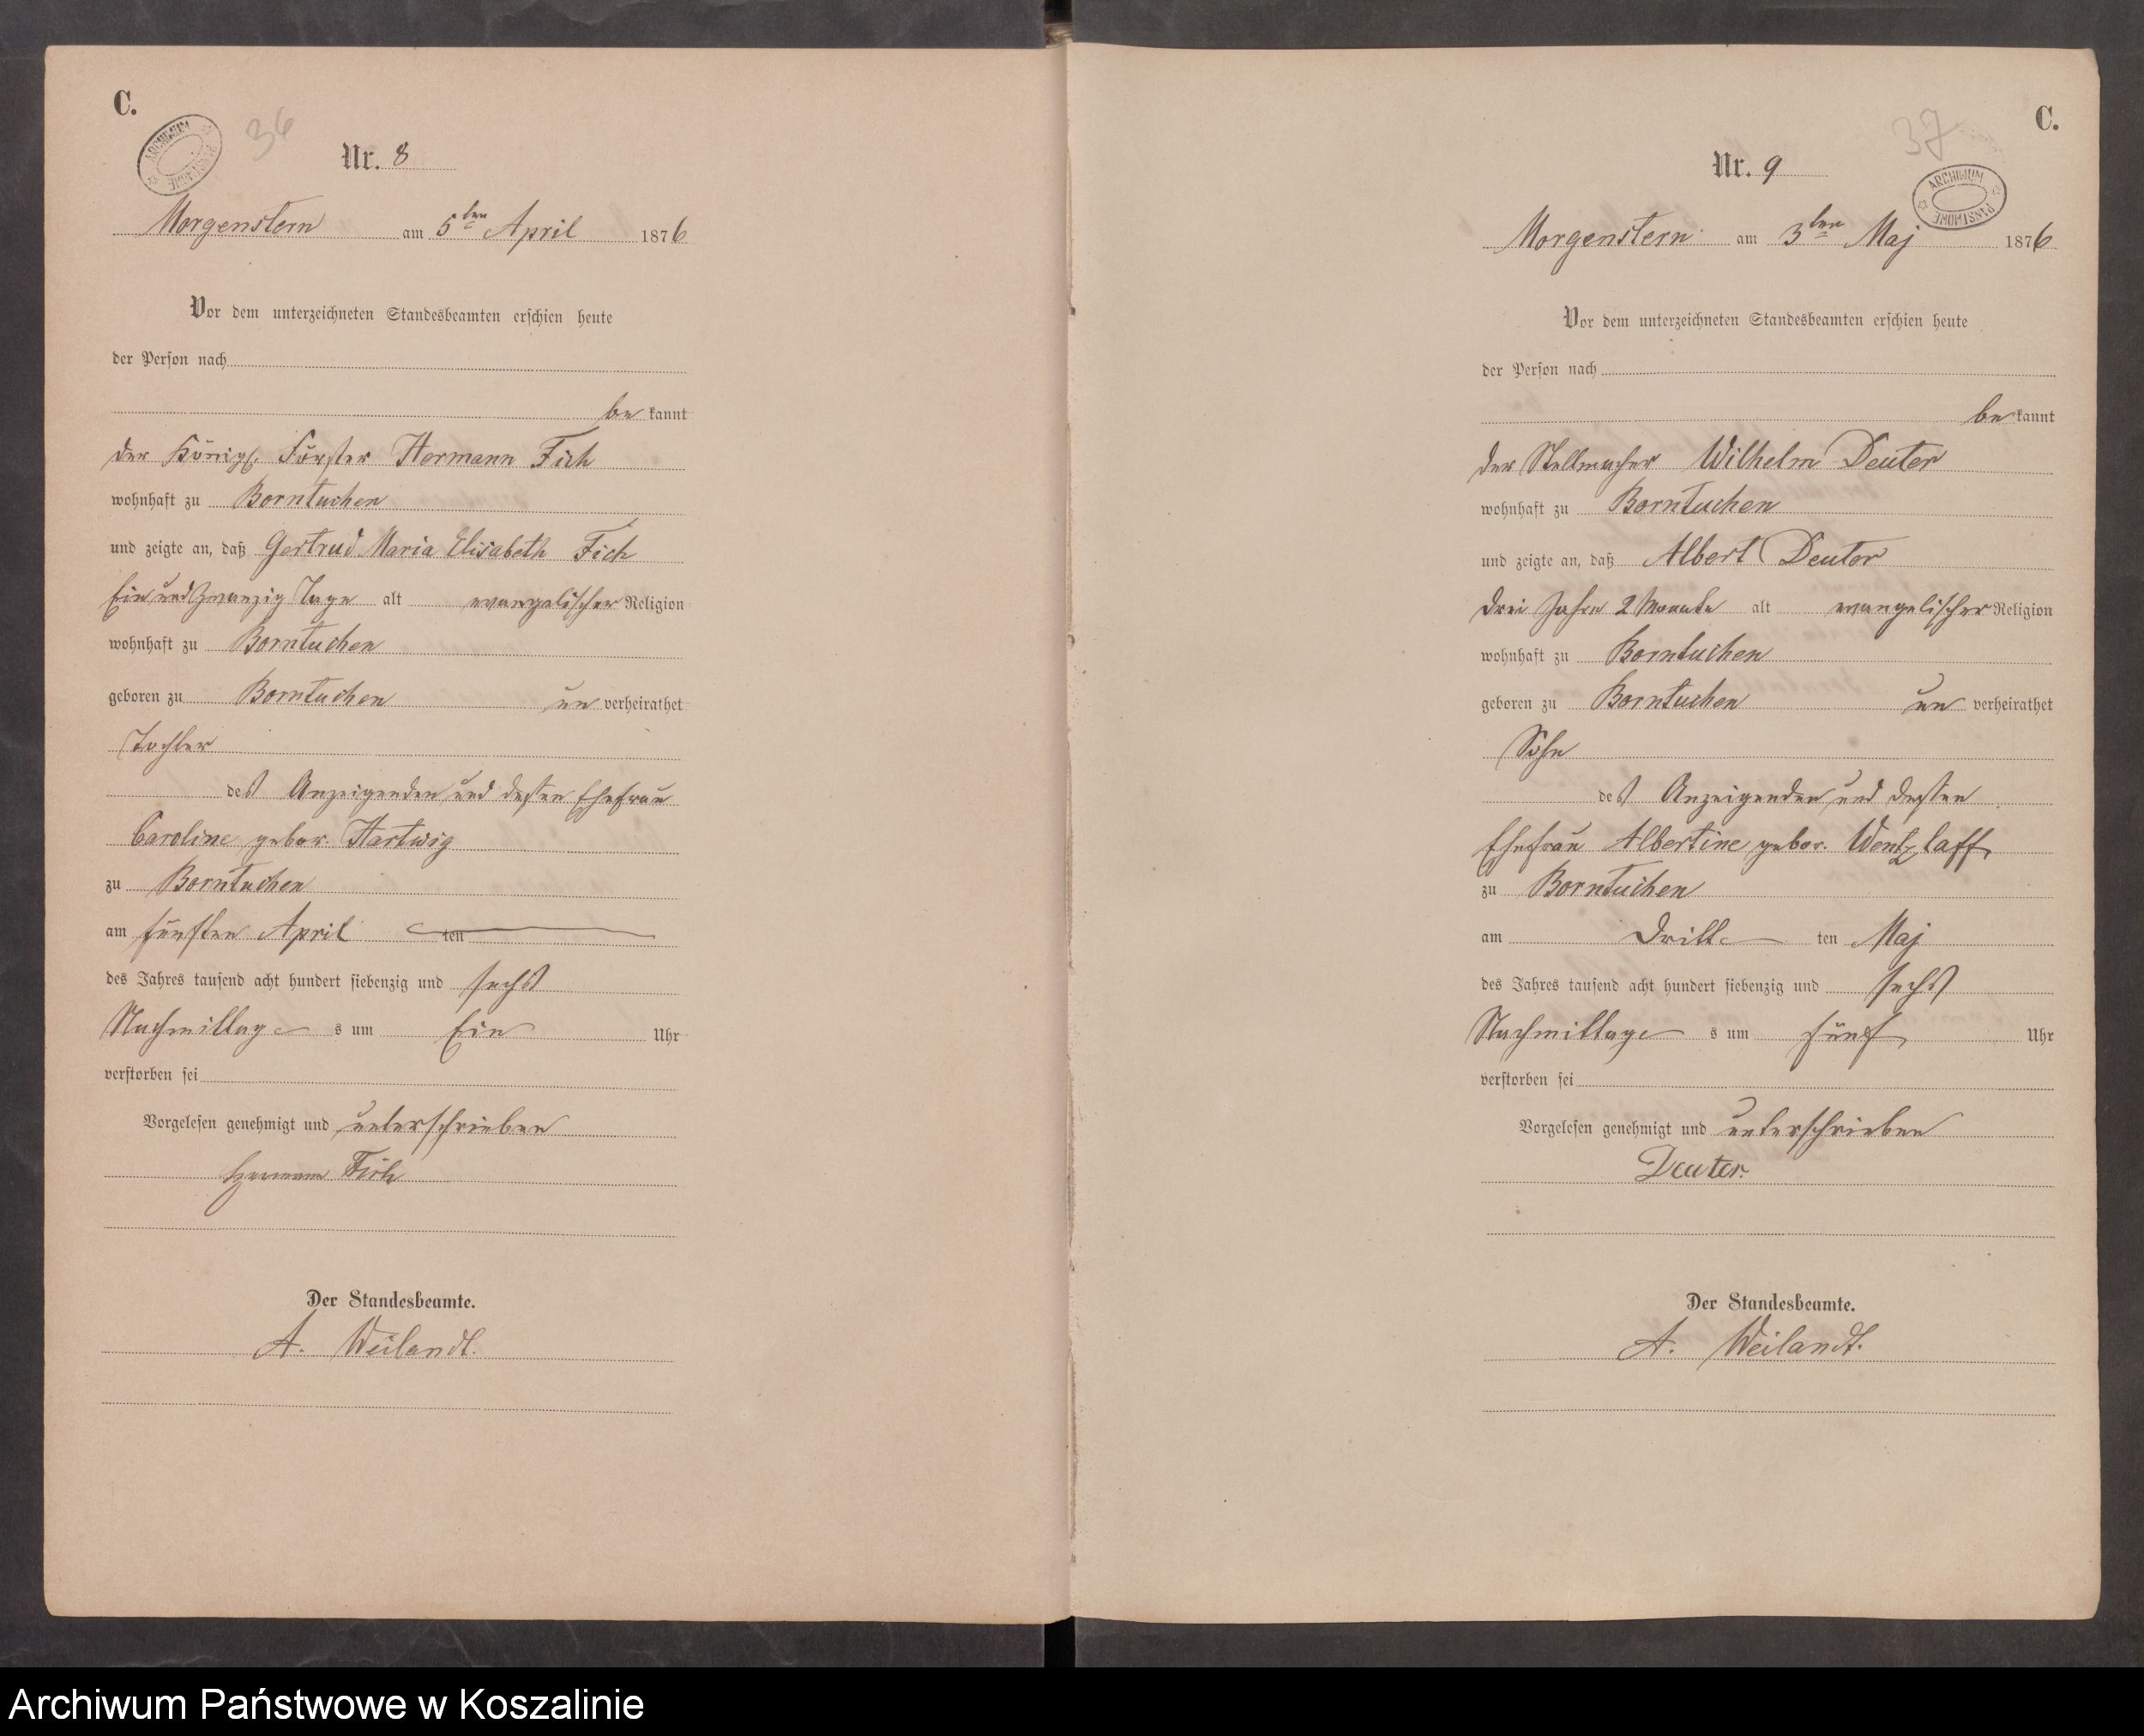 C.
ARCHIWUM PAŃSTWOWE
36
Nr. 8
Morgenstern am 5ten April 1876
Vor dem unterzeichneten Standesbeamten erschien heute
der Person nach
be kannt
der Königl. Förster Hermann Fich
wohnhaft zu Borntuchen
und zeigte an, daß Gertrud Maria Elisabeth Fich
Ein und Zwanzig Tage alt evangelischer Religion
wohnhaft zu Borntuchen
geboren zu Borntuchen un verheirathet
Tochter
des Anzeigenden und dessen Ehefrau
Caroline gebor. Hartwig
zu Borntuchen
am fünften April ten
des Jahres tausend acht hundert siebenzig und sechs
Nachmittage s um Ein Uhr
verstorben sei
Vorgelesen genehmigt und unterschrieben
Hermann Fich
Der Standesbeamte.
A. Weilandt.
C.
37
ARCHIWUM PAŃSTWOWE
Nr. 9
Morgenstern am 3ten Maj 1876
Vor dem unterzeichneten Standesbeamten erschien heute
der Person nach
be kannt
der Stellmacher Wilhelm Deuter
wohnhaft zu Borntuchen
und zeigte an, daß Albert Deuter
drei Jahre 2 Monate alt evangelischer Religion
wohnhaft zu Borntuchen
geboren zu Borntuchen un verheirathet
Sohn
des Anzeigenden und dessen
Ehefrau Albertine gebor. Wentzlaff,
zu Borntuchen
am Dritte ten Maj
des Jahres tausend acht hundert siebenzig und sechs
Nachmittage s um fünf Uhr
verstorben sei
Vorgelesen genehmigt und unterschrieben
Deuter.
Der Standesbeamte.
A. Weilandt.
Archiwum Państwowe w Koszalinie